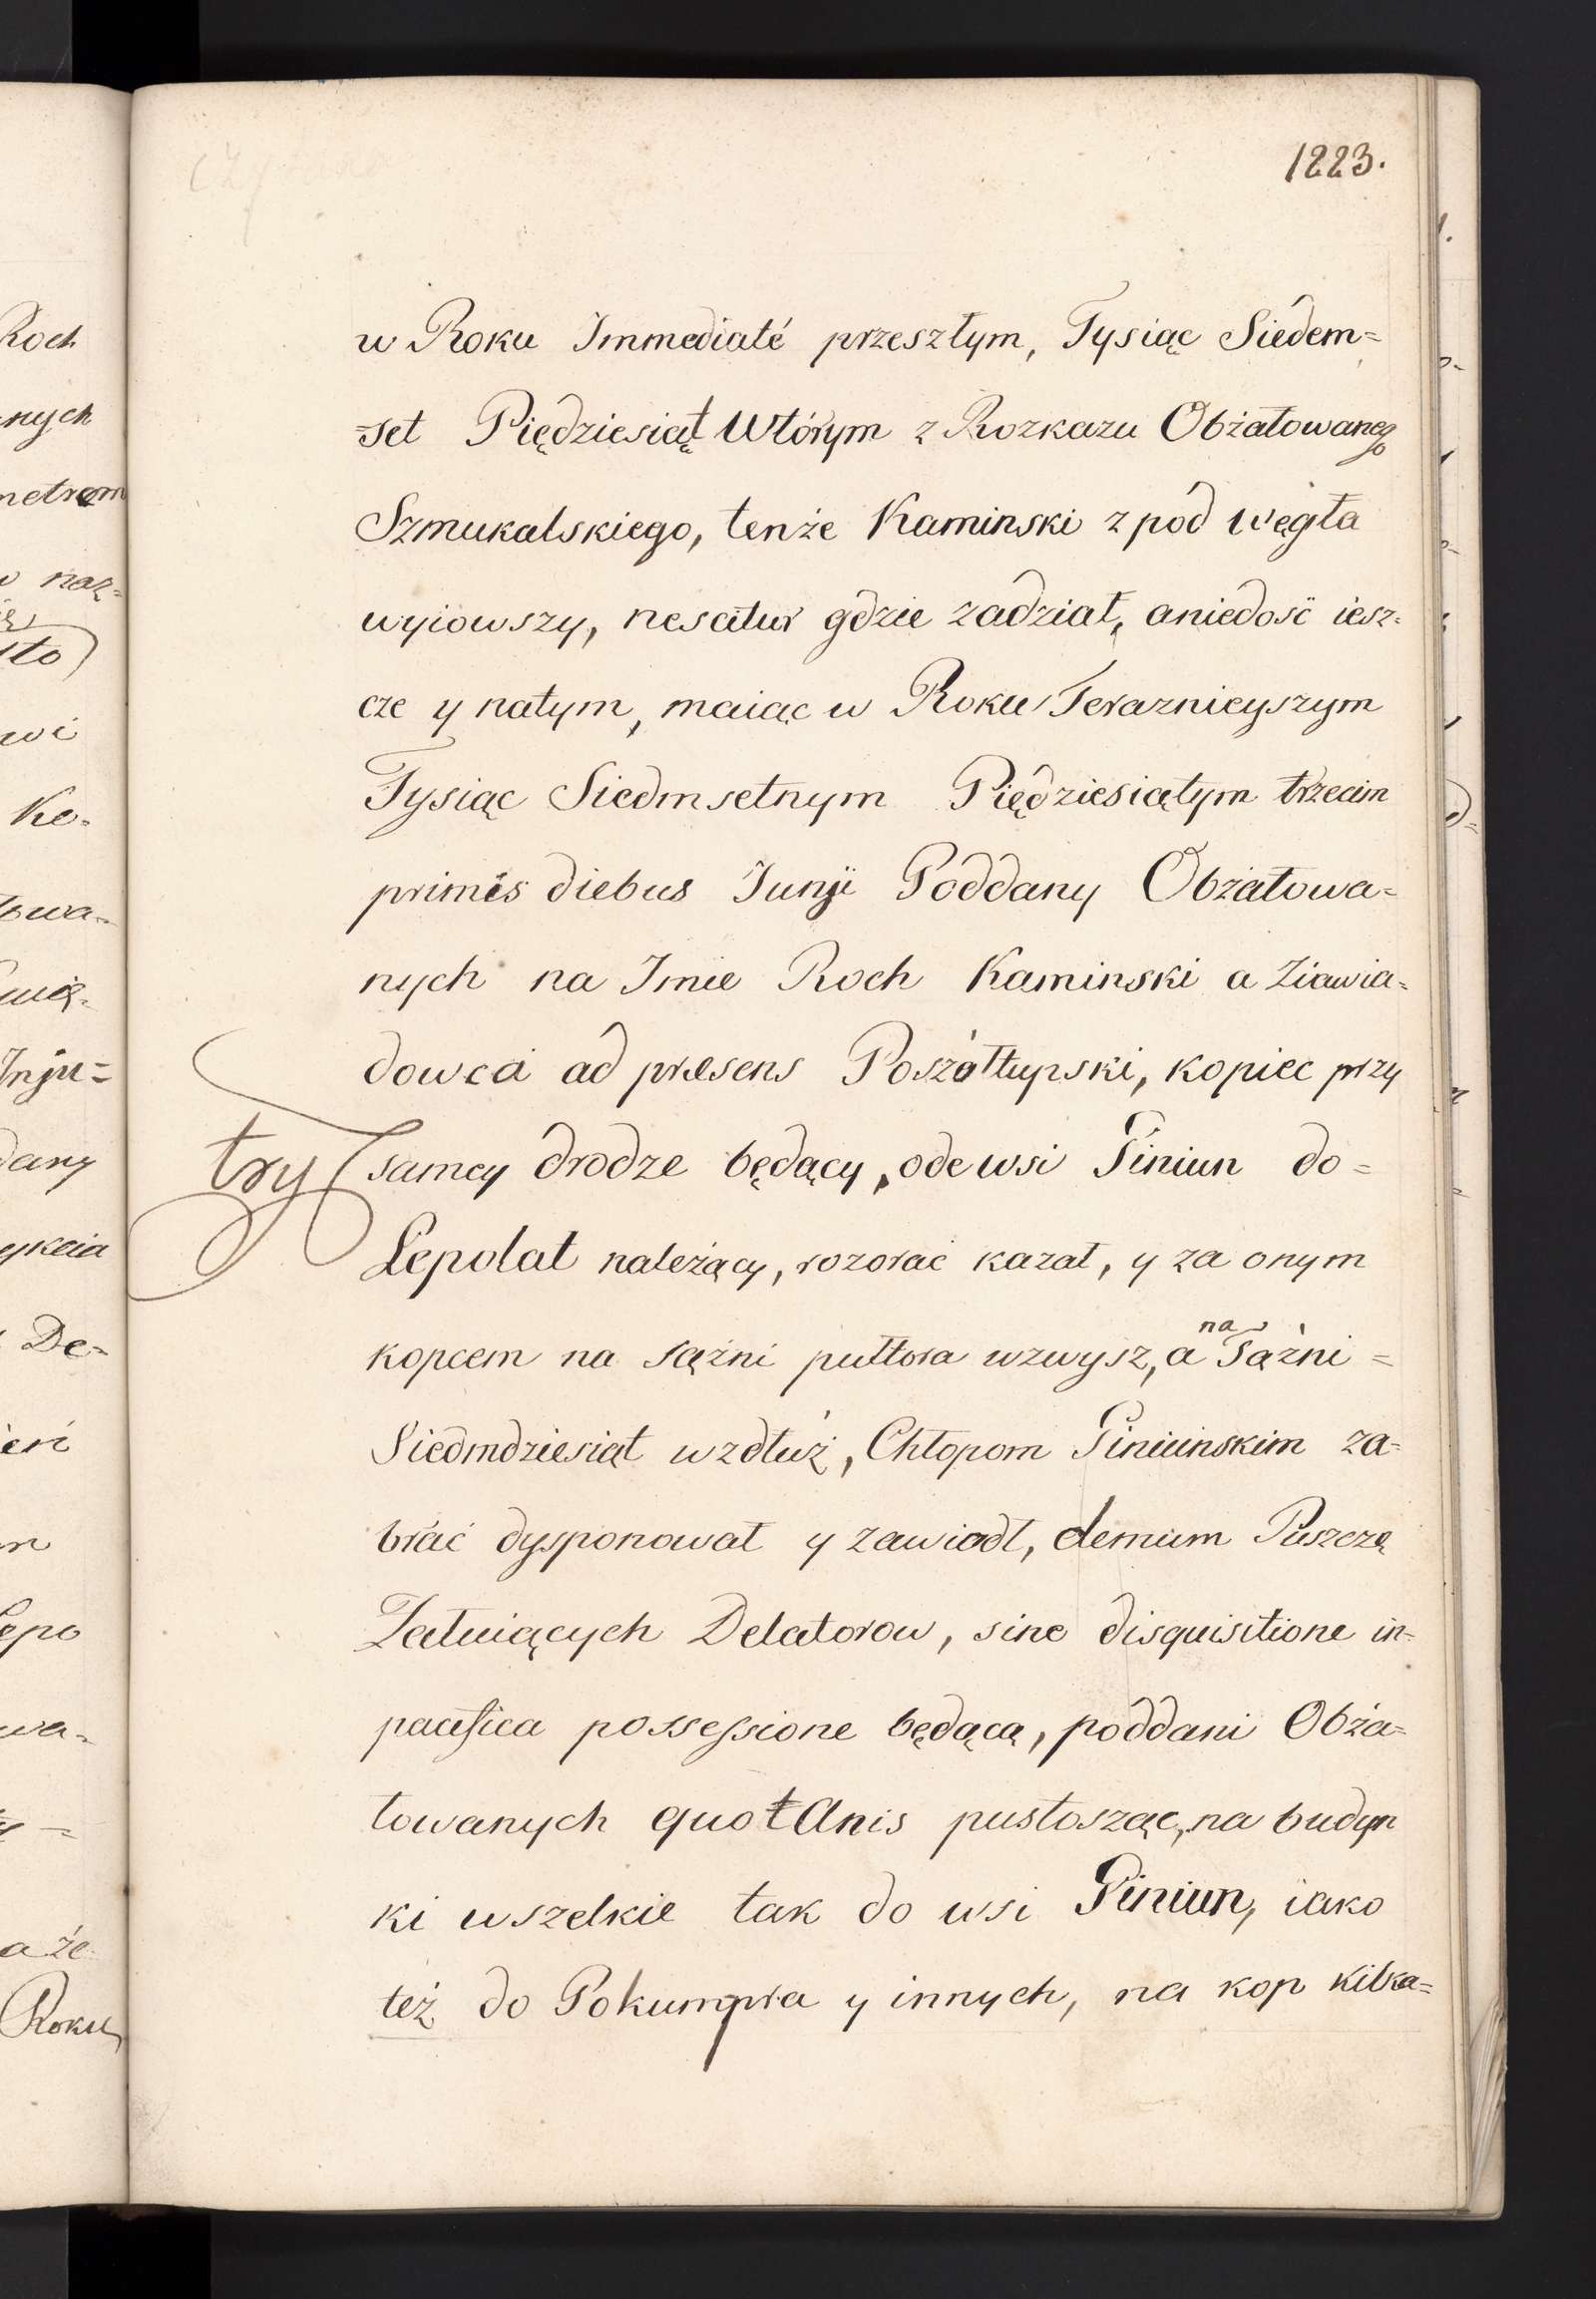 1223.
w Roku Immediaté przeszłym, Tysiąc Siedem=
=set Piędziesiąt Wtórym z Rozkazu Obżałowanego
Szmukalskiego, tenże Kaminski z pod węgła
wyiowszy, nescitur gdzie zadział, aniedość iesz=
cze y natym, maiąc w Roku Teraznieyszym
Tysiąc Siedmsetnym Piędziesiątym trzecim
primis diebus Junji Poddany Obżałowa=
nych na Imie Roch Kaminski a Ziawia=
dowca ad præsens Poszołtupski, kopiec przy
try samey drodze będący, ode wsi Giniun do=
Lepolat należący, rozorać kazał, y za onym
kopcem na sążni pułtora wzwysz, a na Sążni=
Siedmdziesiąt wzdłuż, Chłopom Giniunskim za=
brać dysponował y zawiodł, demum Puszczą
Żałuiących Delatorow, sine disquisitione in=
pacifica possessione będącą, poddani Obża=
łowanych quotAnis pustosząc, na budyn
ki wszelkie tak do wsi Giniun, iako
też do Pokumpra y innych, na kop kilka=
Roch
nych
metrem
naz=
sto)
wi
Ke=
Inju=
dany
De=
Lepo
wa=
a że
Roku